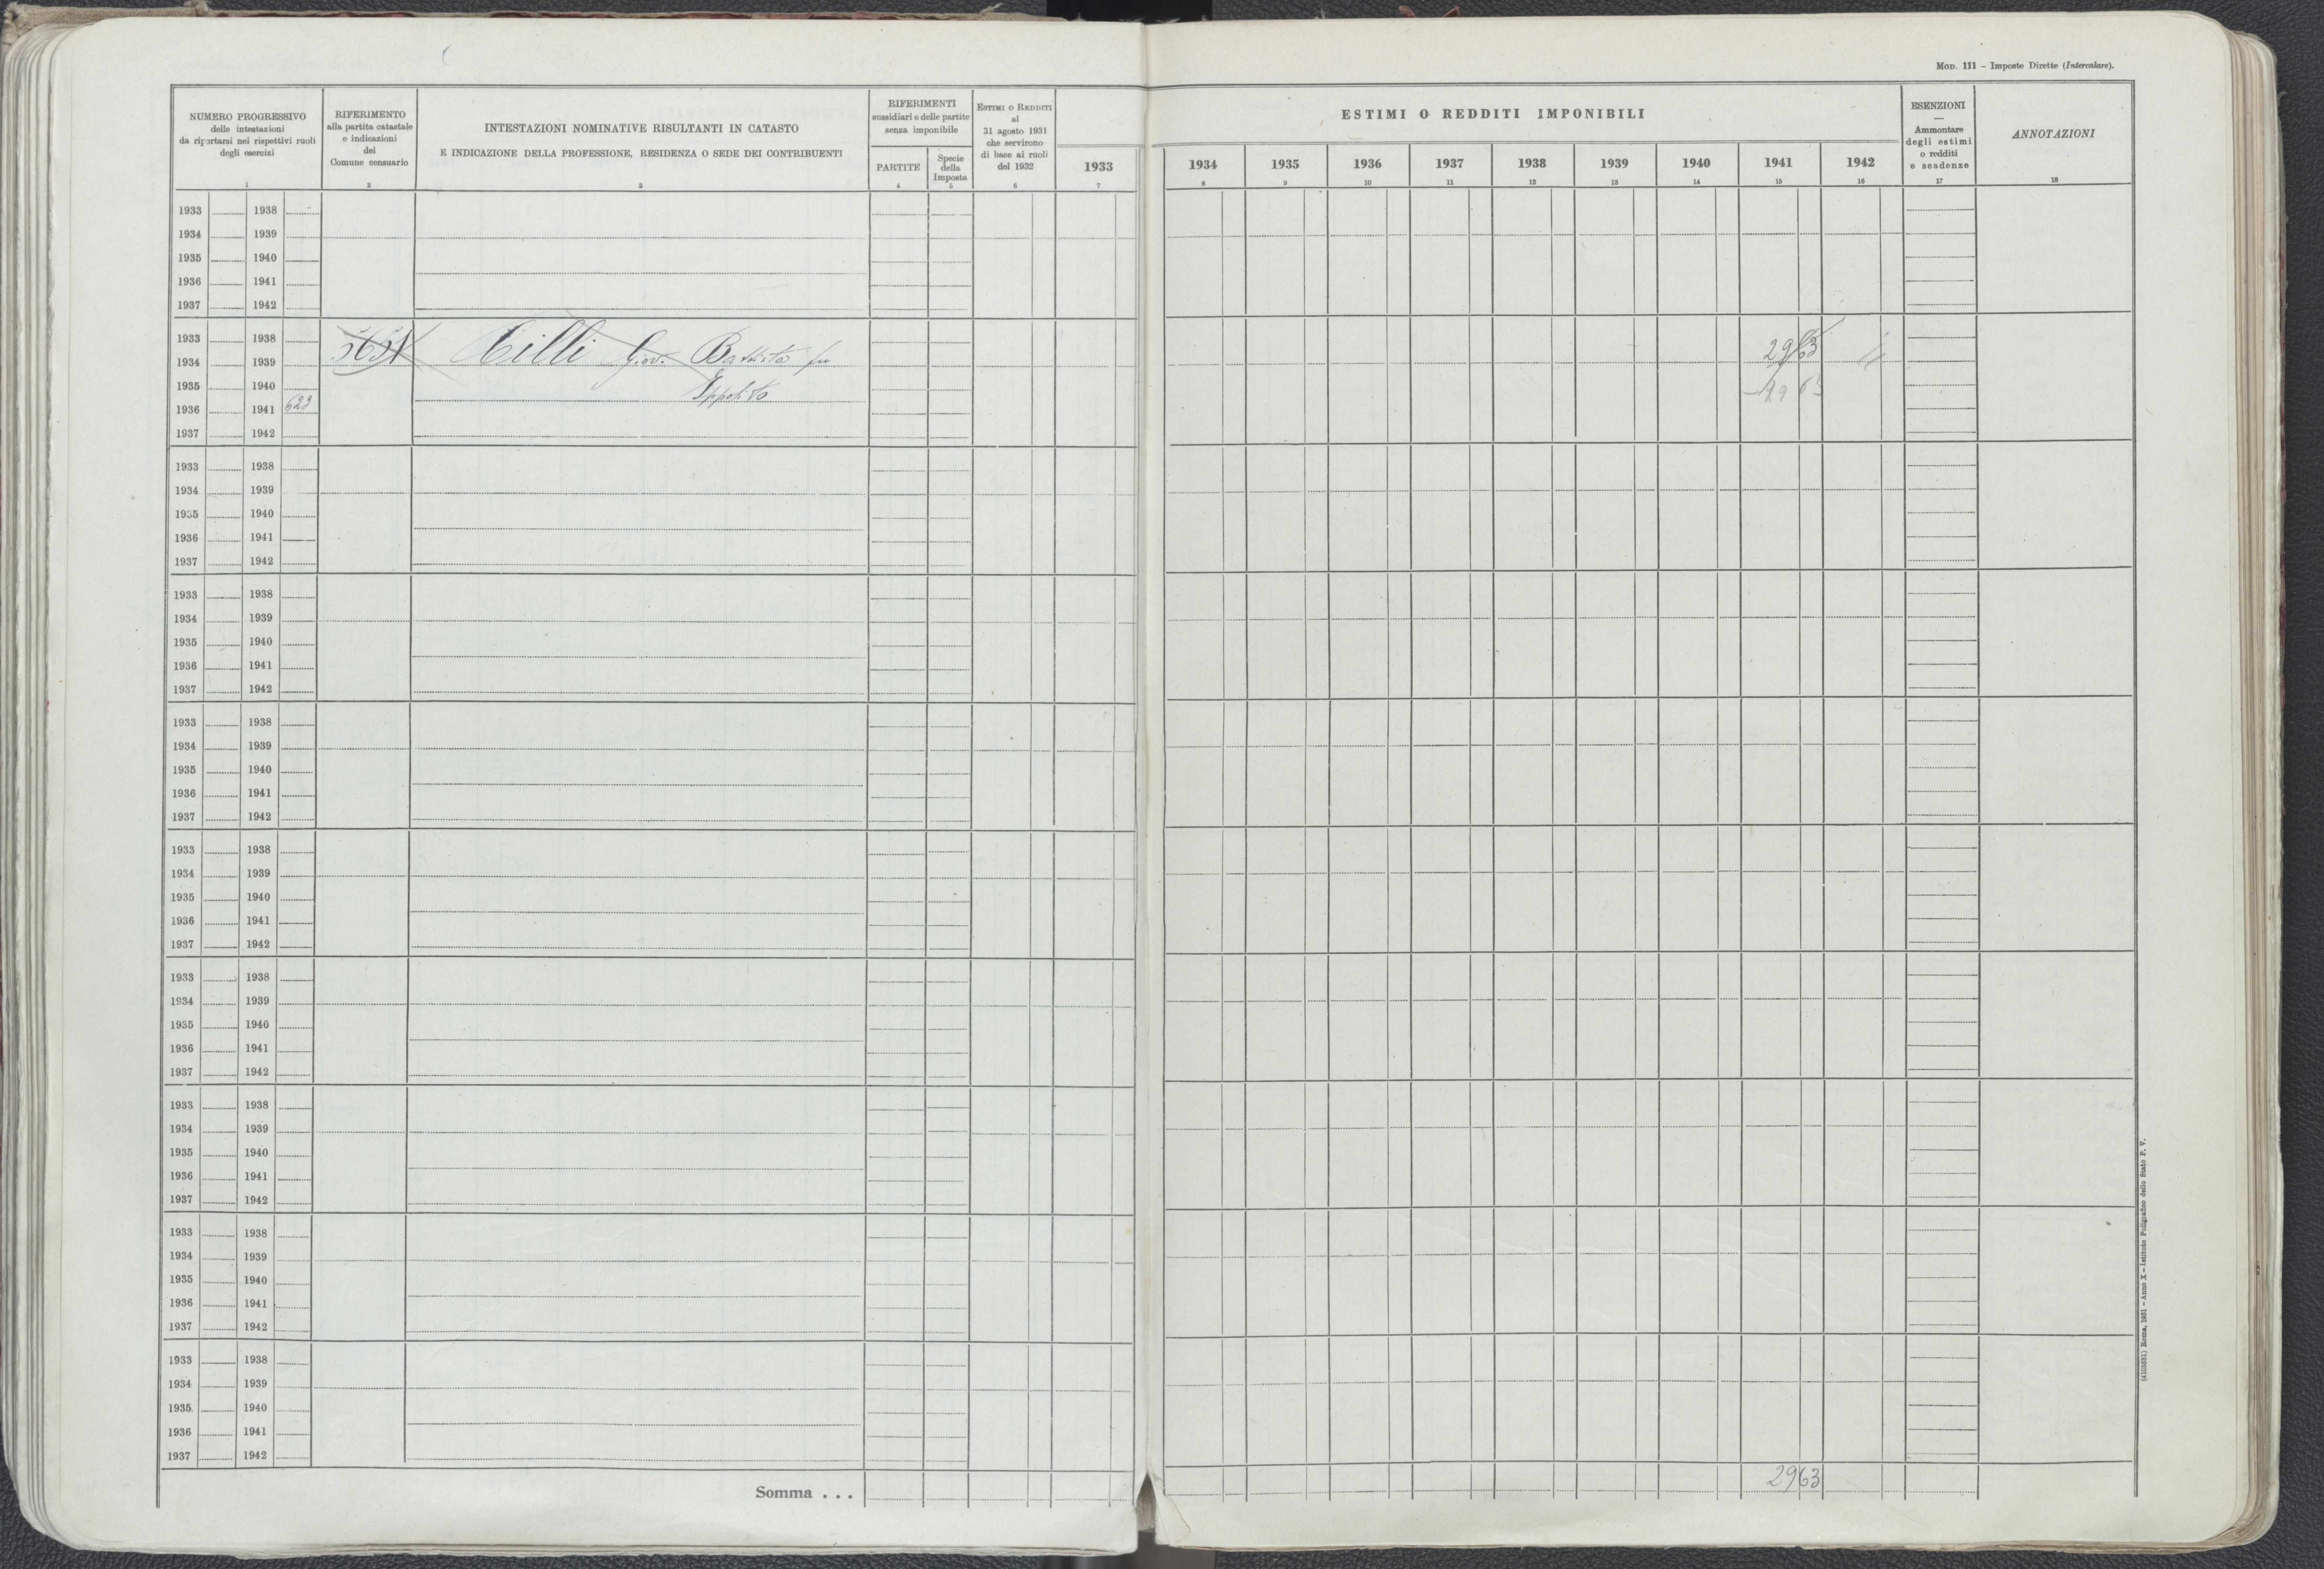 MOD. 111 – Imposte Dirette (Intercalare).
NUMERO PROGRESSIVO
delle intestazioni
da riportarsi nei rispettivi ruoli
degli esercizi
1
RIFERIMENTO
alla partita catastale
e indicazioni
del
Comune censuario
2
INTESTAZIONI NOMINATIVE RISULTANTI IN CATASTO
E INDICAZIONE DELLA PROFESSIONE, RESIDENZA O SEDE DEI CONTRIBUENTI
3
RIFERIMENTI
sussidiari e delle partite
senza imponibile
PARTITE
4
Specie
della
Imposta
5
ESTIMI O REDDITI
al
31 agosto 1931
che servirono
di base ai ruoli
del 1932
6
ESTIMI O REDDITI IMPONIBILI
1933 1934 1935 1936 1937 1938 1939 1940 1941 1942
7 8 9 10 11 12 13 14 15 16
ESENZIONI
—
Ammontare
degli estimi
o redditi
e scadenze
17
ANNOTAZIONI
18
1933 1938
1934 1939
1935 1940
1936 1941
1937 1942
1933 1938
1934 1939 Giov. Battista fu 2963
1935 1940 Ippolito 2963
1936 1941 623
1937 1942
1933 1938
1934 1939
1935 1940
1936 1941
1937 1942
1933 1938
1934 1939
1935 1940
1936 1941
1937 1942
1933 1938
1934 1939
1935 1940
1936 1941
1937 1942
1933 1938
1934 1939
1935 1940
1936 1941
1937 1942
1933 1938
1934 1939
1935 1940
1936 1941
1937 1942
1933 1938
1934 1939
1935 1940
1936 1941
1937 1942
1933 1938
1934 1939
1935 1940
1936 1941
1937 1942
1933 1938
1934 1939
1935 1940
1936 1941
1937 1942
Somma . . . 2963
Roma, 1931 – Anno X – Istituto Poligrafico dello Stato P. V.